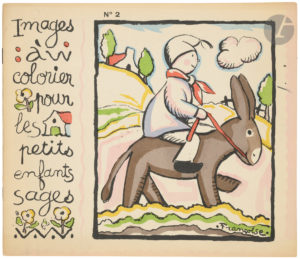 Images
à
colorier
pour
les
petits
enfants
sages
N° 2
Françoise.